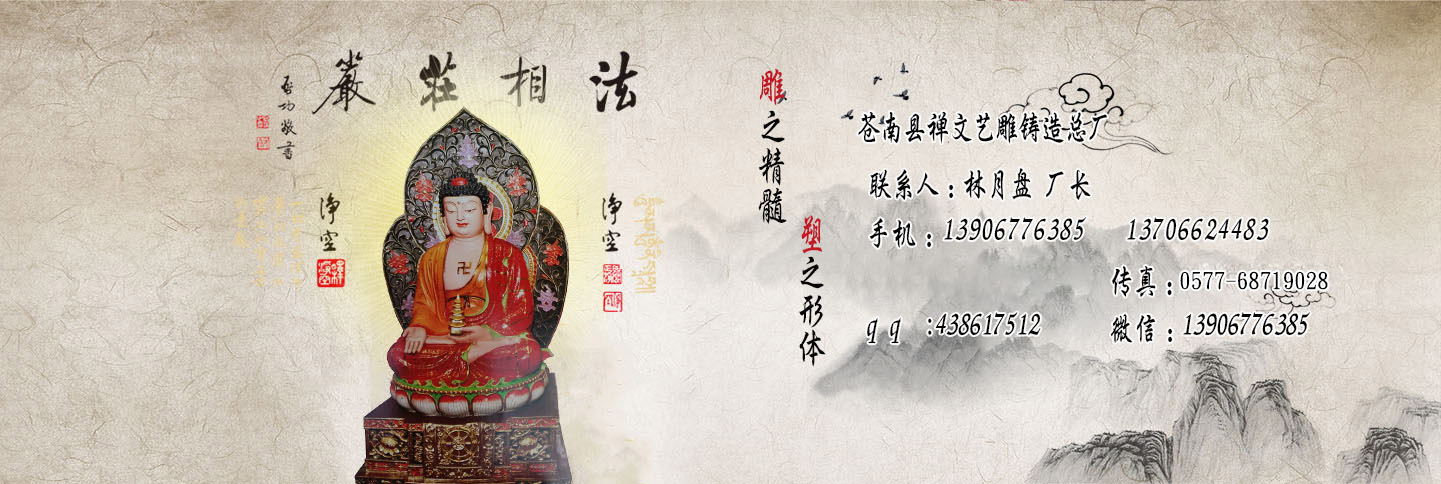 法相莊嚴
启功敬書
淨空
淨空
雕之精髓
塑之形体
苍南县禅文艺雕铸造总厂
联系人：林月盘 厂长
手机：13906776385 13706624483
传真：0577-68719028
qq :438617512
微信：13906776385